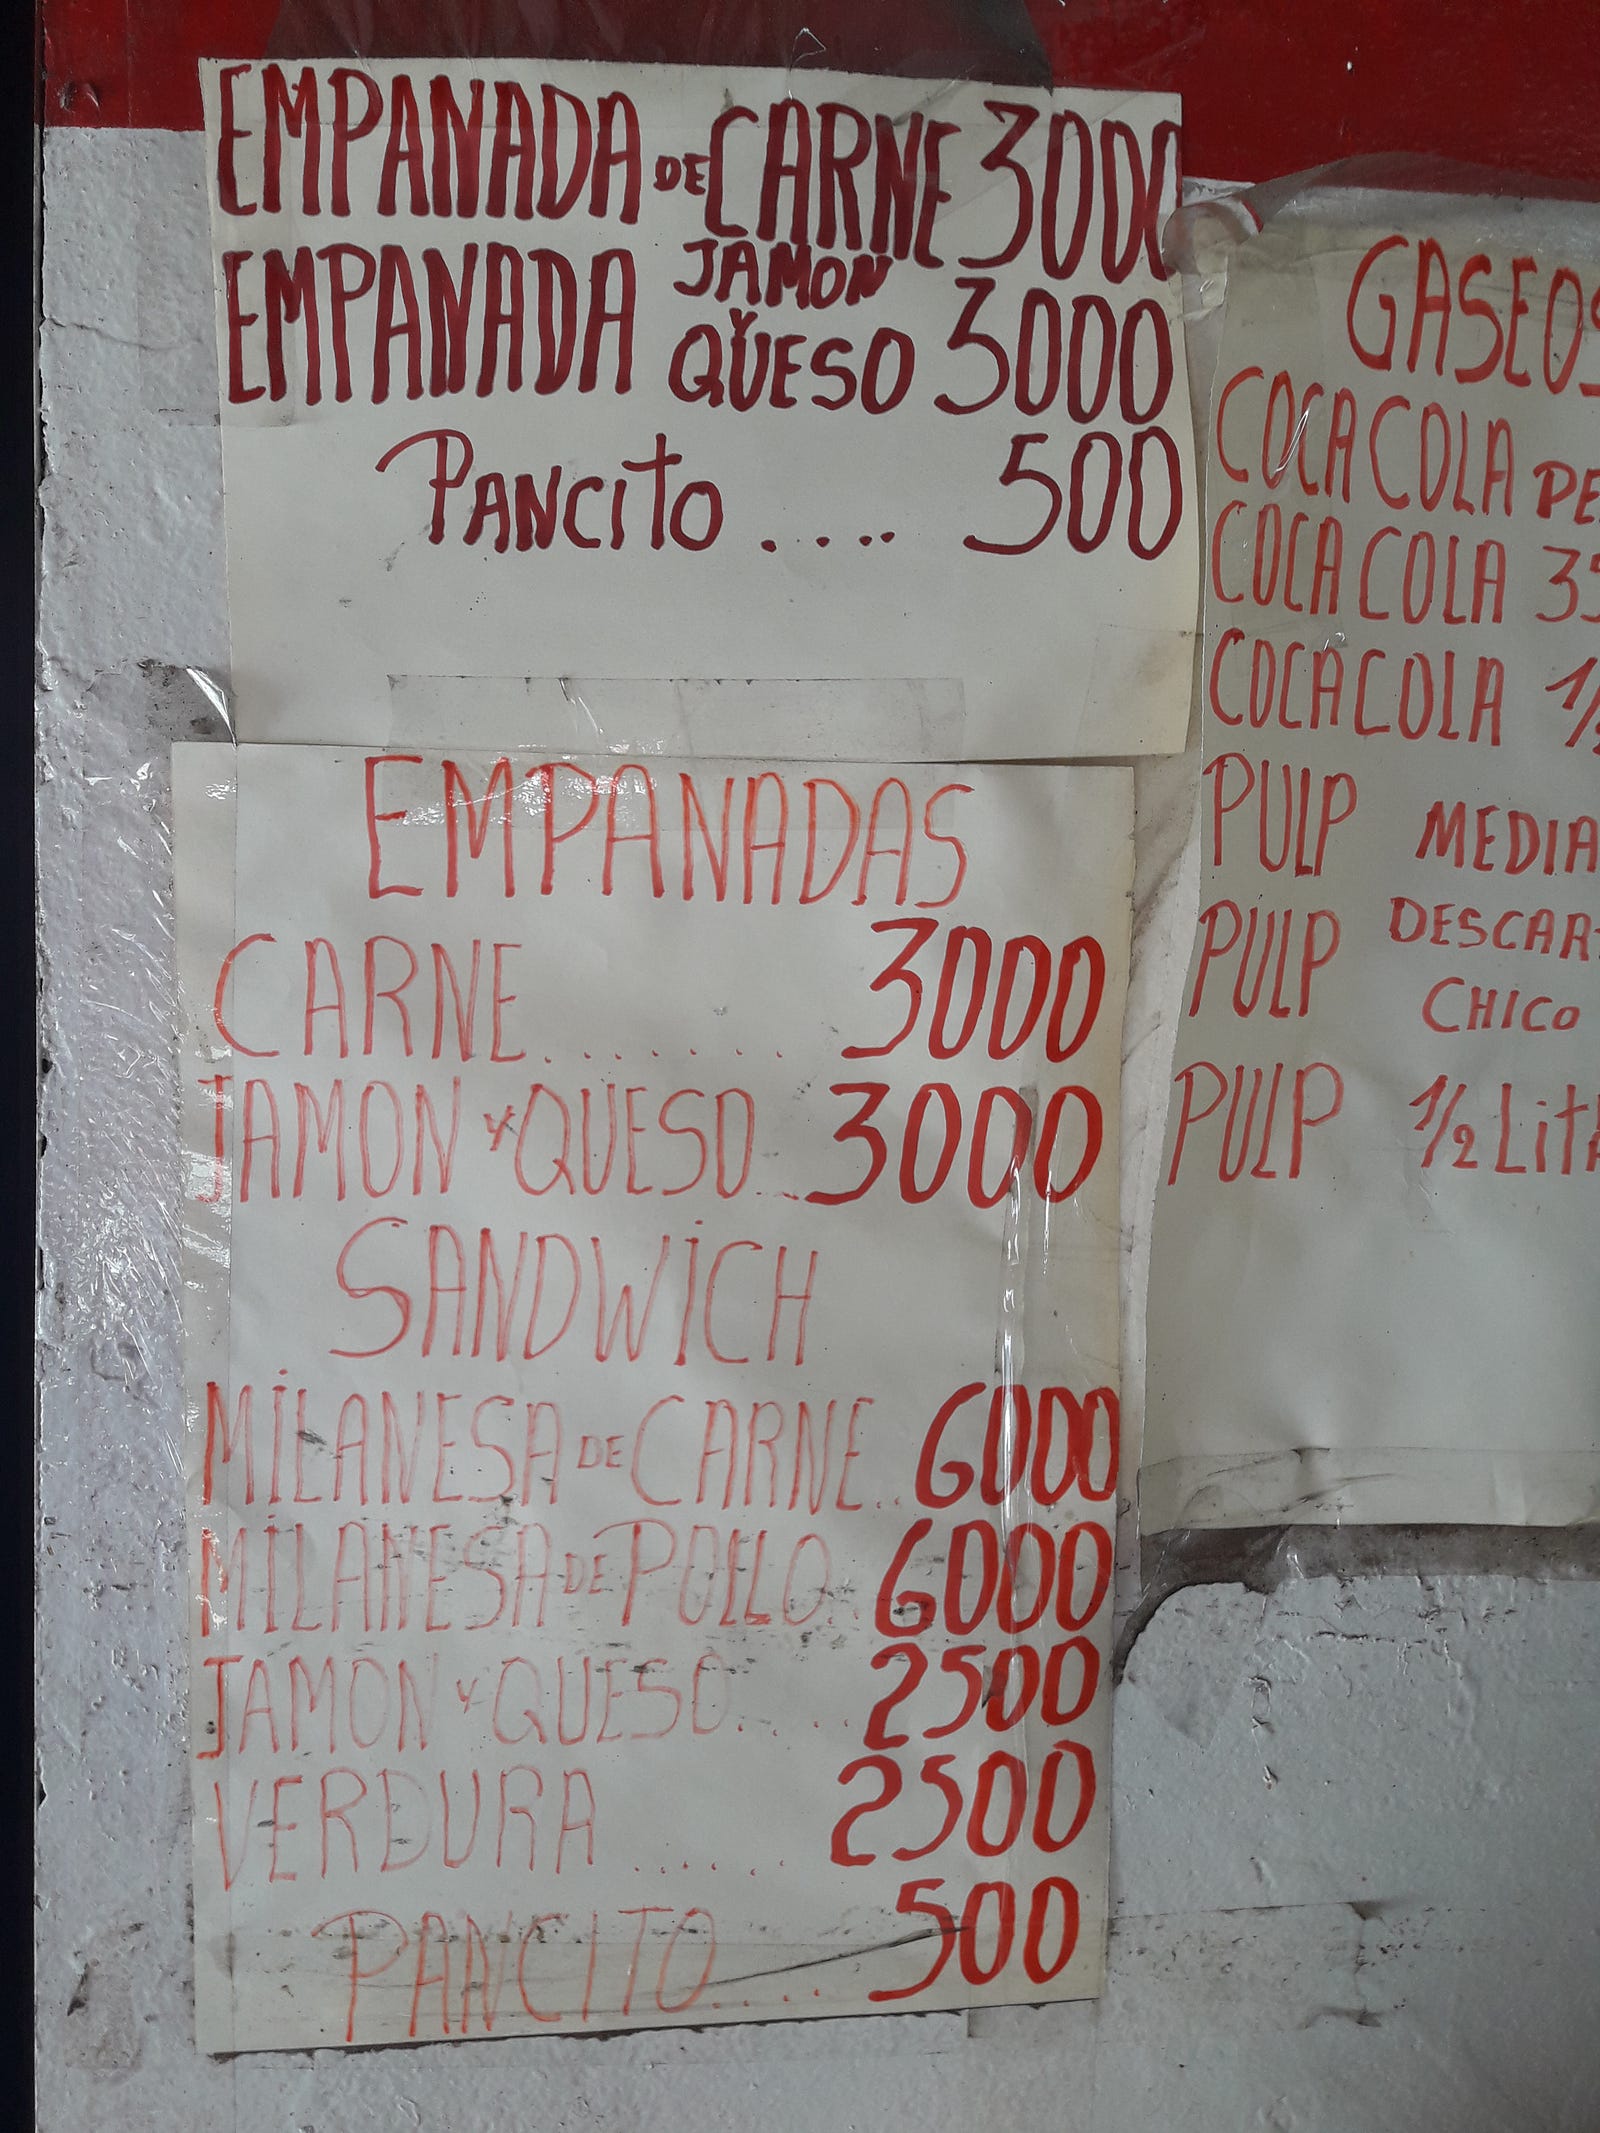 EMPANADA DE CARNE 3000
EMPANADA JAMON Y QUESO 3000
PANCITO .... 500
EMPANADAS
CARNE......... 3000
JAMON Y QUESO... 3000
SANDWICH
MILANESA DE CARNE.. 6000
MILANESA DE POLLO.. 6000
JAMON Y QUESO..... 2500
VERDURA ...... 2500
PANCITO.... 500
COCA COLA
COCA COLA
COCA COLA
PULP MEDIA
PULP
CHICO
PULP 1/2